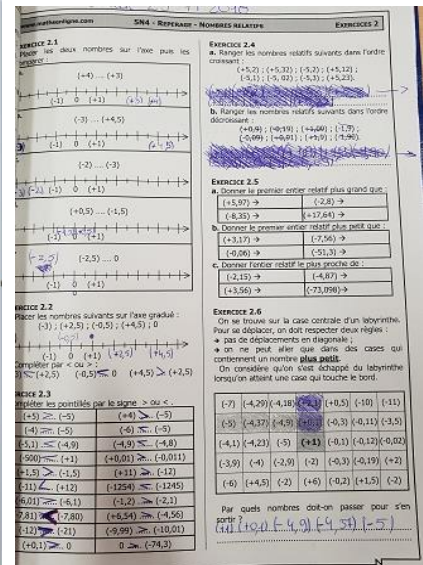 www.mathsenligne.com 5N4 - REPERAGE - NOMBRES RELATIFS EXERCICES 2
EXERCICE 2.1
Placer les deux nombres sur l'axe puis les
comparer :
(+4) .... (+3)
(-1) 0 (+1) (+3) (+4)
(-3) .... (+4,5)
(-1) 0 (+1) (+4,5)
(-2) .... (-3)
(-3) (-2) (-1) 0 (+1)
(+0,5) .... (-1,5)
(-1) 0 (+1)
(-2,5) (-2,5) .... 0
(-1) 0 (+1)
EXERCICE 2.2
Placer les nombres suivants sur l'axe gradué :
(-3) ; (+2,5) ; (-0,5) ; (+4,5) ; 0
(-1) 0 (+1) (+2,5) (+4,5)
Compléter par < ou > :
(-3) < (+2,5) (-0,5) < 0 (+4,5) > (+2,5)
EXERCICE 2.3
Compléter les pointillés par le signe > ou < .
(+5) > (-5) (+4) > (-5)
(-4) (-5) (-6) (-5)
(-5,1) < (-4,9) (-4,9) (-4,8)
(-500) (+1) (+0,01) > (-0,011)
(+1,5) > (-1,5) (+11) > (-12)
(-11) < (+12) (-1254) < (-1245)
(-6,01) (-6,1) (-1,2) > (-2,1)
(-7,81) (-7,80) (+6,54) > (-4,56)
(-12) (-21) (-9,99) > (-10,01)
(+0,1) > 0 0 > (-74,3)
EXERCICE 2.4
a. Ranger les nombres relatifs suivants dans l'ordre
croissant :
(+5,2) ; (+5,32) ; (-5,2) ; (+5,12) ;
(-5,1) ; (-5,02) ; (-5,3) ; (+5,23).
b. Ranger les nombres relatifs suivants dans l'ordre
décroissant :
(+0,9) ; (-0,19) ; (+1,00) ; (-1,9) ;
(-0,09) ; (+0,01) ; (+1,9) ; (-1,90).
EXERCICE 2.5
a. Donner le premier entier relatif plus grand que :
(+5,97) → (-2,8) →
(-8,35) → (+17,64) →
b. Donner le premier entier relatif plus petit que :
(+3,17) → (-7,56) →
(-0,06) → (-51,3) →
c. Donner l'entier relatif le plus proche de :
(-2,15) → (-4,87) →
(+3,56) → (-73,098) →
EXERCICE 2.6
On se trouve sur la case centrale d'un labyrinthe.
Pour se déplacer, on doit respecter deux règles :
→ pas de déplacements en diagonale ;
→ on ne peut aller que dans des cases qui
contiennent un nombre plus petit.
On considère qu'on s'est échappé du labyrinthe
lorsqu'on atteint une case qui touche le bord.
(-7) (-4,29) (-4,18) (+2,1) (+0,5) (-10) (-11)
(-5) (-4,37) (-4,9) (+0,1) (-0,3) (-0,11) (-3,5)
(-4,1) (-4,23) (-5) (+1) (-0,1) (-0,12) (-0,02)
(-3,9) (-4) (-2,9) (-2) (-0,3) (-0,19) (+2)
(-6) (+4,5) (-2) (+6) (-0,2) (+1,5) (-2)
Par quels nombres doit-on passer pour s'en
sortir ?
(+1) (+0,1) (-4,9) (-4,37) (-5)